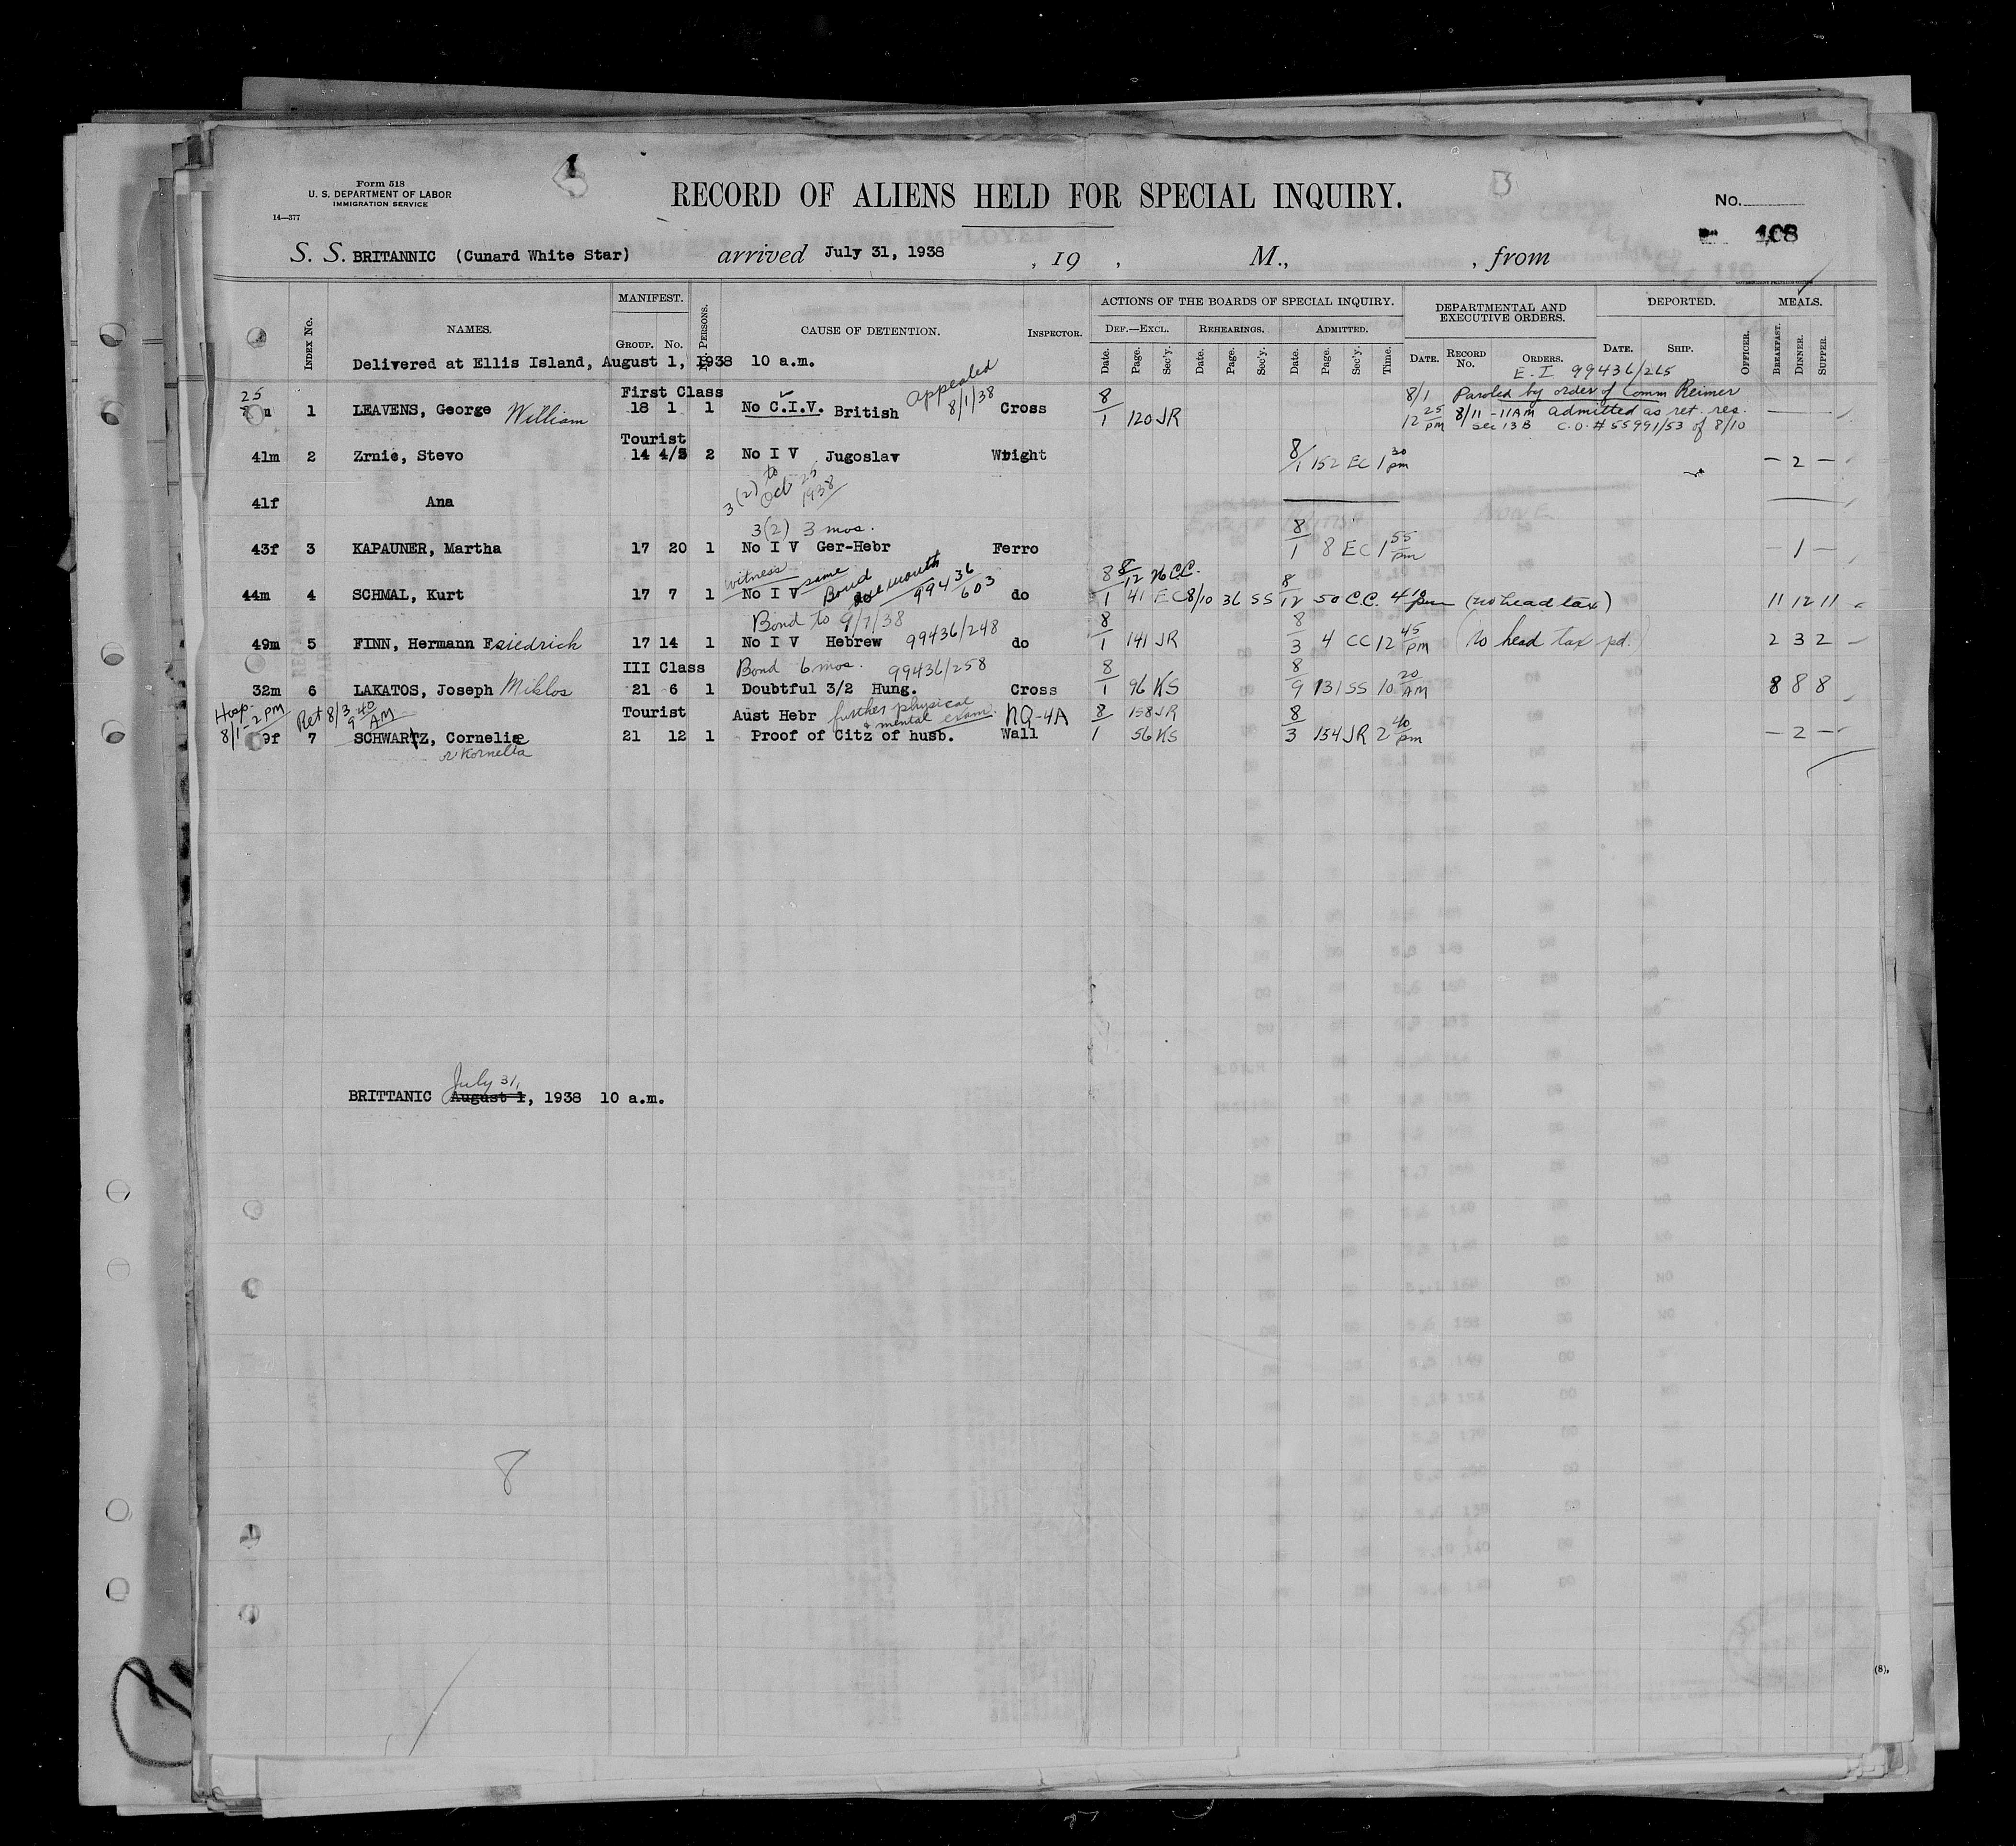 Form 518
U. S. DEPARTMENT OF LABOR
IMMIGRATION SERVICE
14—377
RECORD OF ALIENS HELD FOR SPECIAL INQUIRY.
No.
108
S. S. BRITANNIC (Cunard White Star) arrived July 31, 1938 , 19 , M., , from
INDEX No. NAMES. MANIFEST. GROUP. No. PERSONS. CAUSE OF DETENTION. INSPECTOR. ACTIONS OF THE BOARDS OF SPECIAL INQUIRY. DEPARTMENTAL AND EXECUTIVE ORDERS. DEPORTED. MEALS.
DEF.—EXCL. REHEARINGS. ADMITTED.
Date. Page. Sec'y. Date. Page. Sec'y. Date. Page. Sec'y. Time. DATE. RECORD No. ORDERS. DATE. SHIP. OFFICER. BREAKFAST. DINNER. SUPPER.
Delivered at Ellis Island, August 1, 1938 10 a.m.
E. I 99436/265
First Class
25 1 LEAVENS, George William 18 1 1 No C.I.V. British Appealed 8/1/38 Cross 8/1 120 JR 8/1 Paroled by order of Comm Reimer
12 25 pm 8/11 - 11 AM admitted as ret. res.
Sec 13 B C.O. # 55991/53 of 8/10
Tourist
41m 2 Zrnic, Stevo 14 4/5 2 No I V Jugoslav Wright 8/1 152 EC 1 30 pm — 2 —
3(2) to Oct 25 1938
41f Ana
3(2) 3 mos.
43f 3 KAPAUNER, Martha 17 20 1 No I V Ger-Hebr Ferro 8/1 8 EC 1 55 pm — 1 —
witness same Bond one month 99436/603
8/12 26 C.C.
44m 4 SCHMAL, Kurt 17 7 1 No I V do 8/1 41 EC 8/10 36 SS 8/12 50 C.C. 4 10 pm (no head tax) 11 12 11
Bond to 9/7/38
49m 5 FINN, Hermann Friedrich 17 14 1 No I V Hebrew 99436/248 do 8/1 141 JR 8/3 4 CC 12 45 pm (no head tax pd.) 2 3 2
III Class Bond 6 mos. 99436/258
32m 6 LAKATOS, Joseph Miklos 21 6 1 Doubtful 3/2 Hung. Cross 8/1 96 KS 8/9 131 SS 10 20 AM 8 8 8
Hosp. 8/1 - 2 PM Ret 8/3 9 40 AM
Tourist Aust Hebr further physical & mental exam. NQ-4A 8/1 158 JR
9f 7 SCHWARTZ, Cornelia 21 12 1 Proof of Citz of husb. Wall 56 KS 8/3 154 JR 2 40 pm — 2 —
or Kornelia
July 31,
BRITTANIC August 1, 1938 10 a.m.
8
(8),